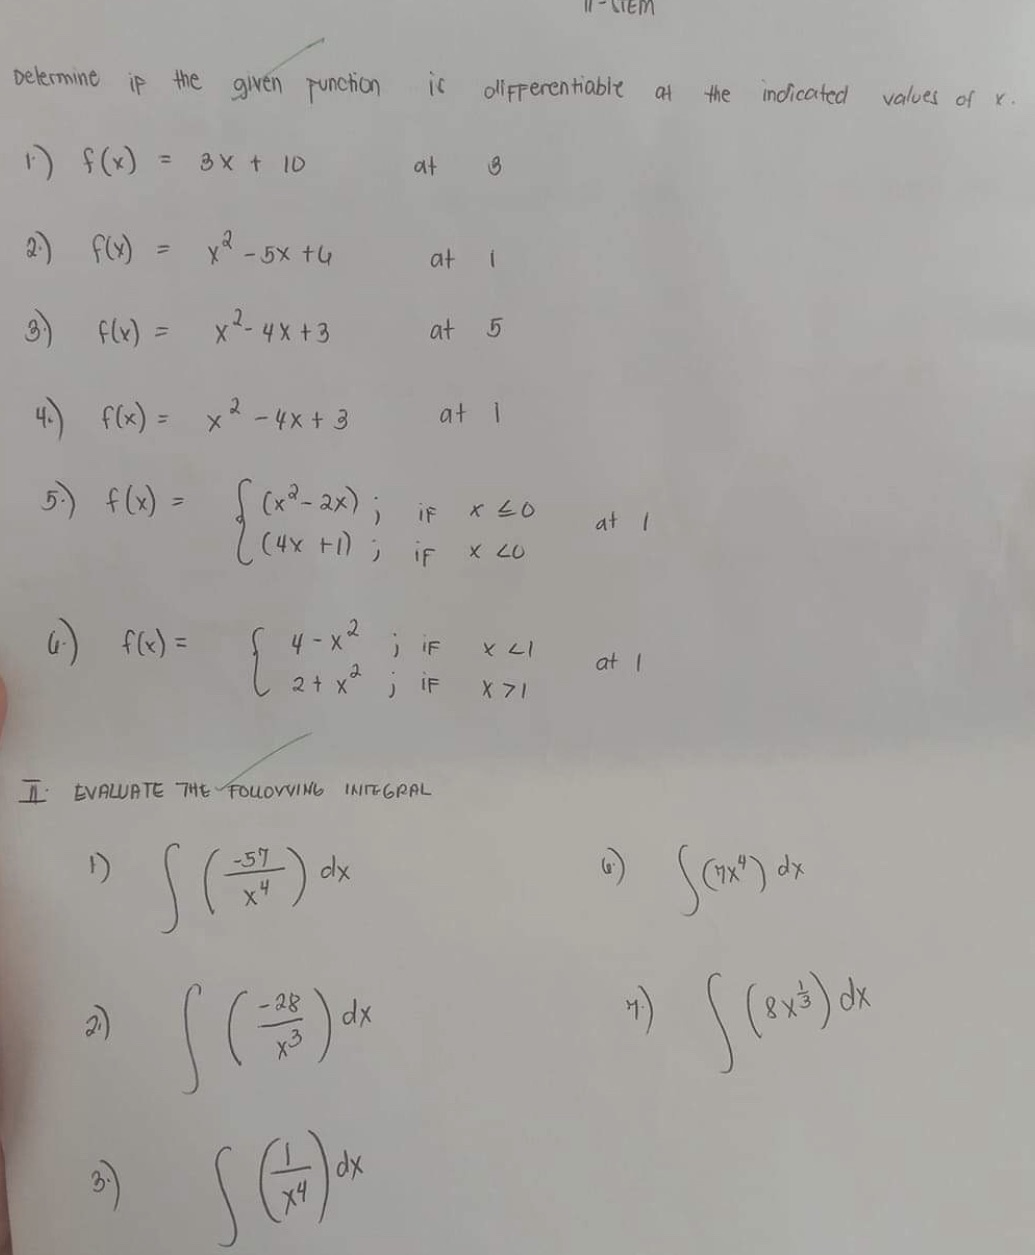 11-STEM
Determine if the given function is differentiable at the indicated values of x.
1.) f(x) = 3x + 10 at 3
2.) f(x) = x² - 5x + 6 at 1
3.) f(x) = x² - 4x + 3 at 5
4.) f(x) = x² - 4x + 3 at 1
5.) f(x) = { (x² - 2x) ; if x ≤ 0 at 1
(4x + 1) ; if x < 0
6.) f(x) = { 4 - x² ; if x < 1 at 1
2 + x² ; if x > 1
II. EVALUATE THE FOLLOWING INTEGRAL
1) ∫ (-57/x⁴) dx
6.) ∫ (7x⁴) dx
2.) ∫ (-28/x³) dx
7.) ∫ (8x^(1/3)) dx
3.) ∫ (1/x⁴) dx